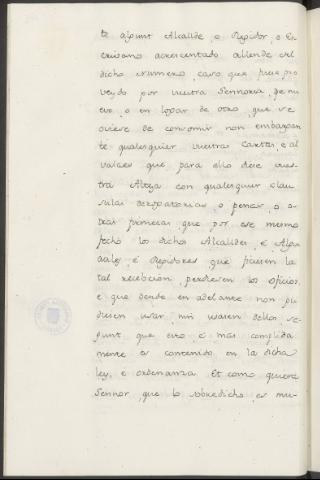 te algunt Alcallde, o Regidor, o Es-
crivano acrescentado allende del
dicho numero, caso que fuese pro
veydo por vuestra Sennoria de nu
evo, o en logar de otro, que se
oviese de consumir non embargan
te qualesquier vuestras Cartas, e al
valaes que para ello diese vues-
tra Alteza con qualesquier clau
sulas derogatorias, o penas, o o-
tras firmezas, que por ese mesmo
fecho los dichos Alcalldes, e Algua
ziles, e Regidores que fiziesen la
tal recebcion, perdiesen los oficios,
e que dende en adelante non pu
diesen usar, nin usasen dellos, se-
gunt que esto, e mas complida
mente es contenido en la dicha
ley, e ordenanza. Et como quiere
Sennor, que lo sobredicho es mu-